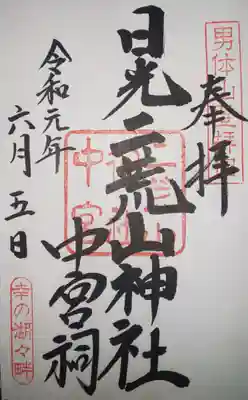 奉拝
日光二荒山神社
中宮祠
令和元年
六月五日
幸の湖々畔